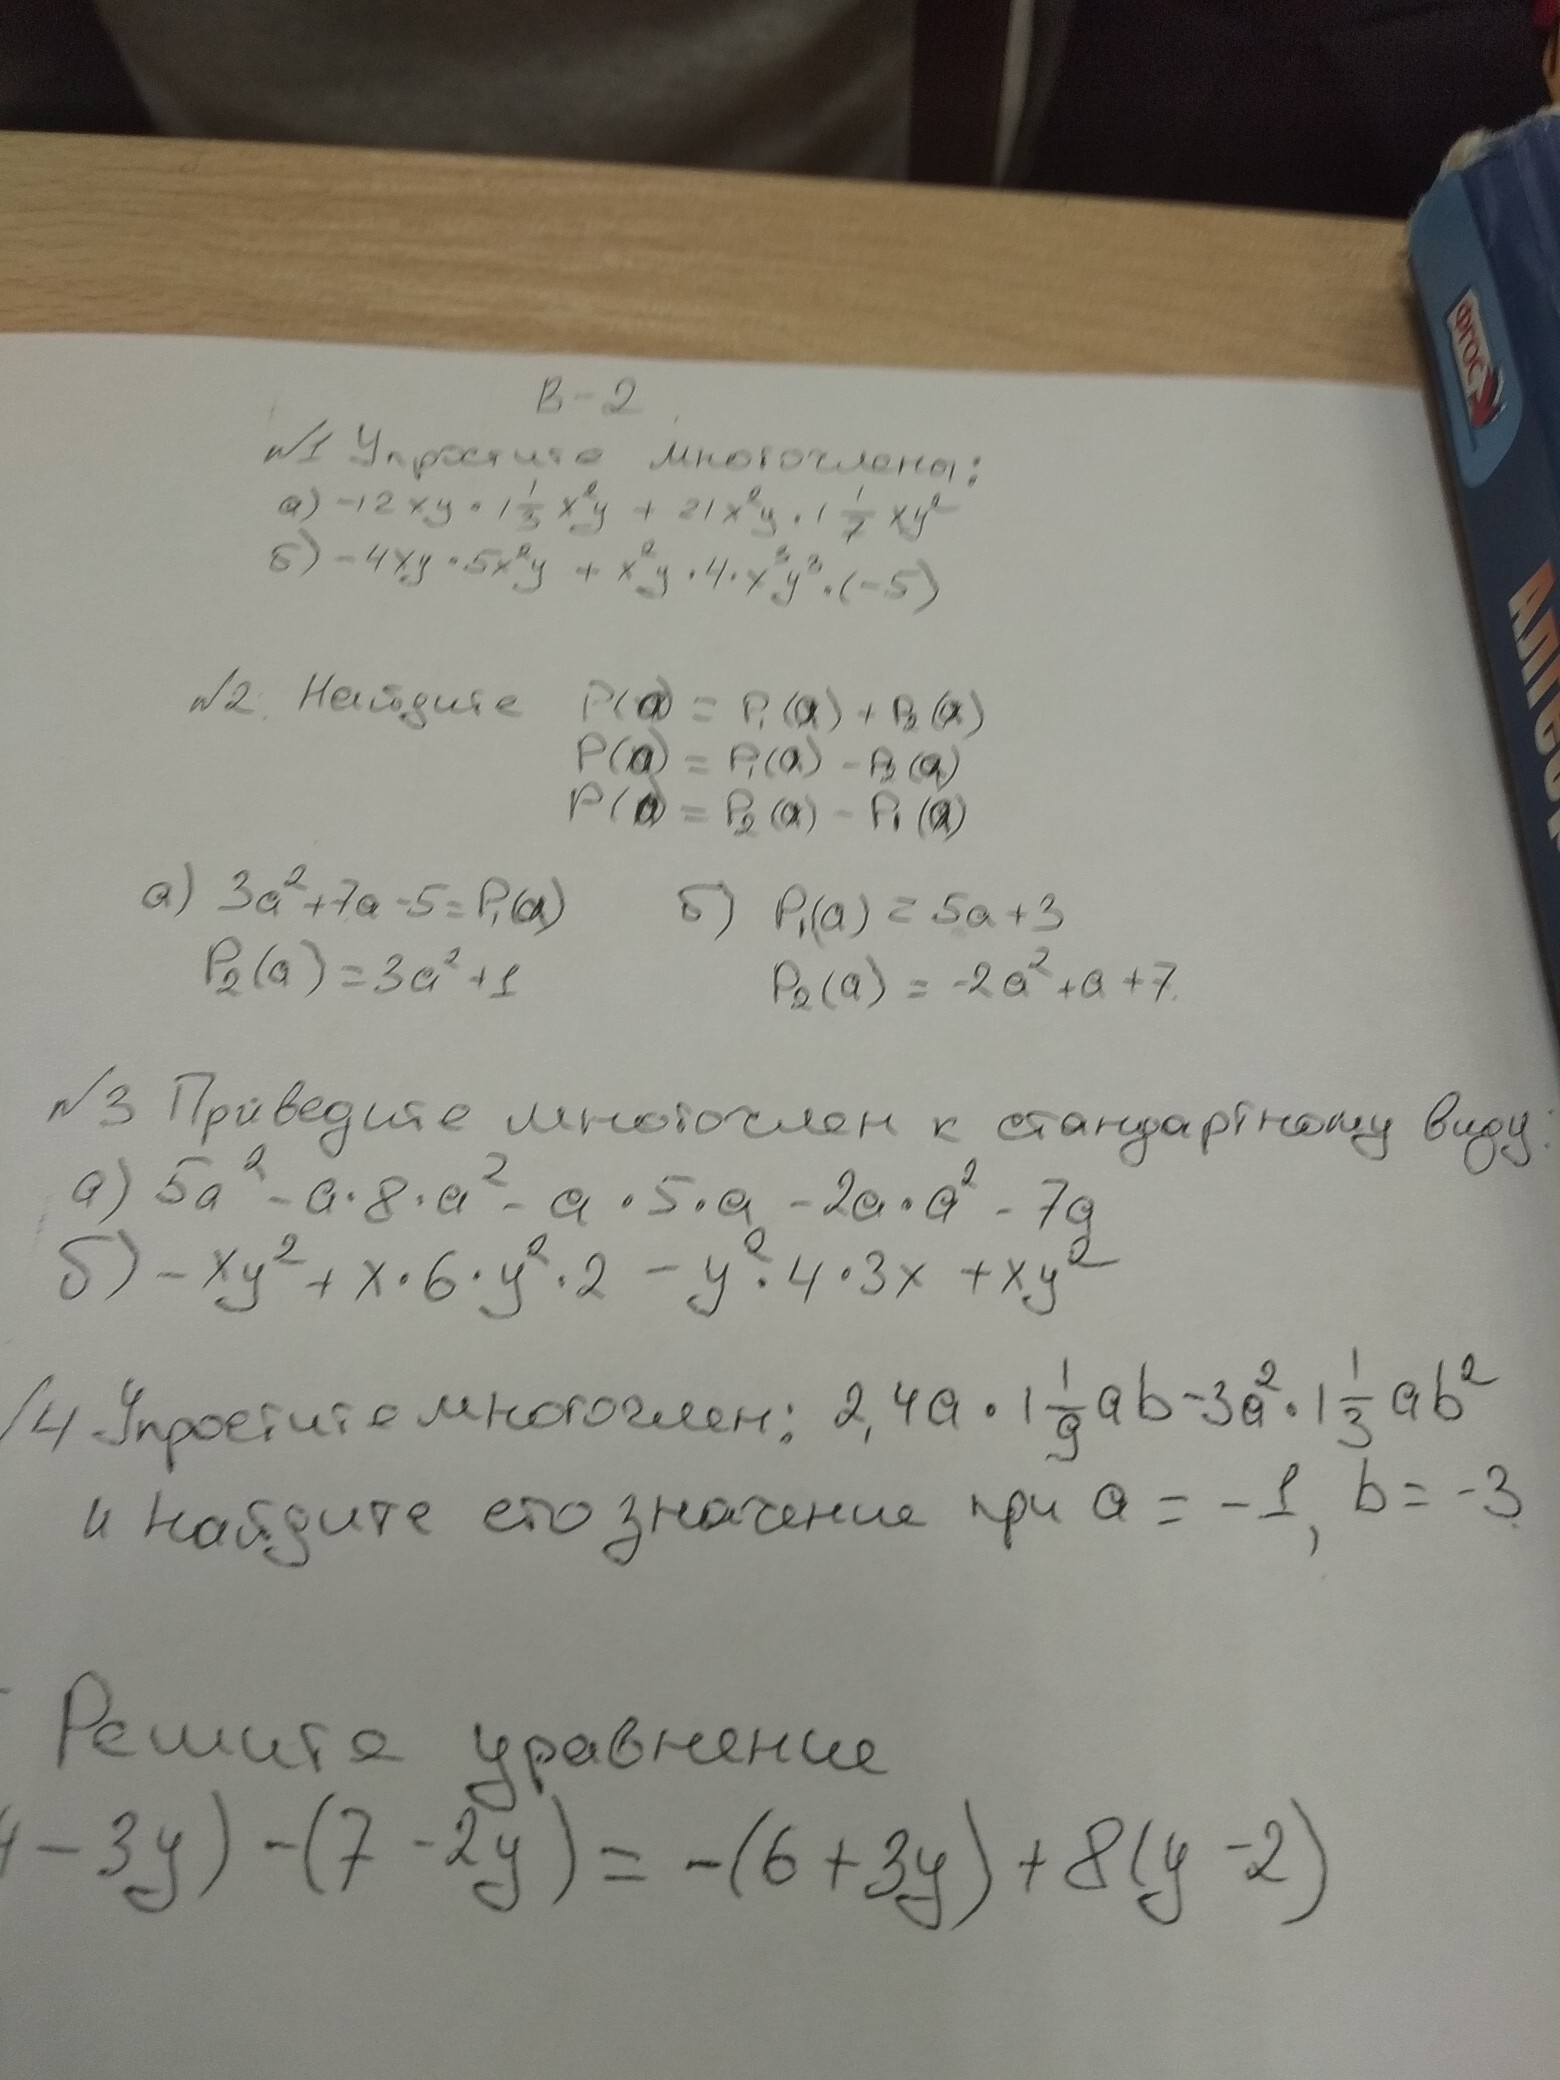 В-2
№1 Упростите многочлены:
а) -12xy · 1 1/3 x²y + 21x²y · 1 1/7 xy²
б) -4xy · 5x²y + x²y · 4 · x³y³ · (-5)
№2. Найдите P(a) = P₁(a) + P₂(a)
P(a) = P₁(a) - P₂(a)
P(a) = P₂(a) - P₁(a)
а) 3a² + 7a - 5 = P₁(a) б) P₁(a) = 5a + 3
P₂(a) = 3a² + 1 P₂(a) = -2a² + a + 7.
№3 Приведите многочлен к стандартному виду:
а) 5a² - a · 8 · a² - a · 5 · a - 2a · a² - 7a
б) - xy² + x · 6 · y² · 2 - y² · 4 · 3x + xy²
4 Упростите многочлен: 2,4a · 1 1/9 ab - 3a² · 1 1/3 ab²
и найдите его значение при a = -1, b = -3
Решите уравнение
- 3y) - (7 - 2y) = -(6 + 3y) + 8(y - 2)
ФГОС
АЛГЕ